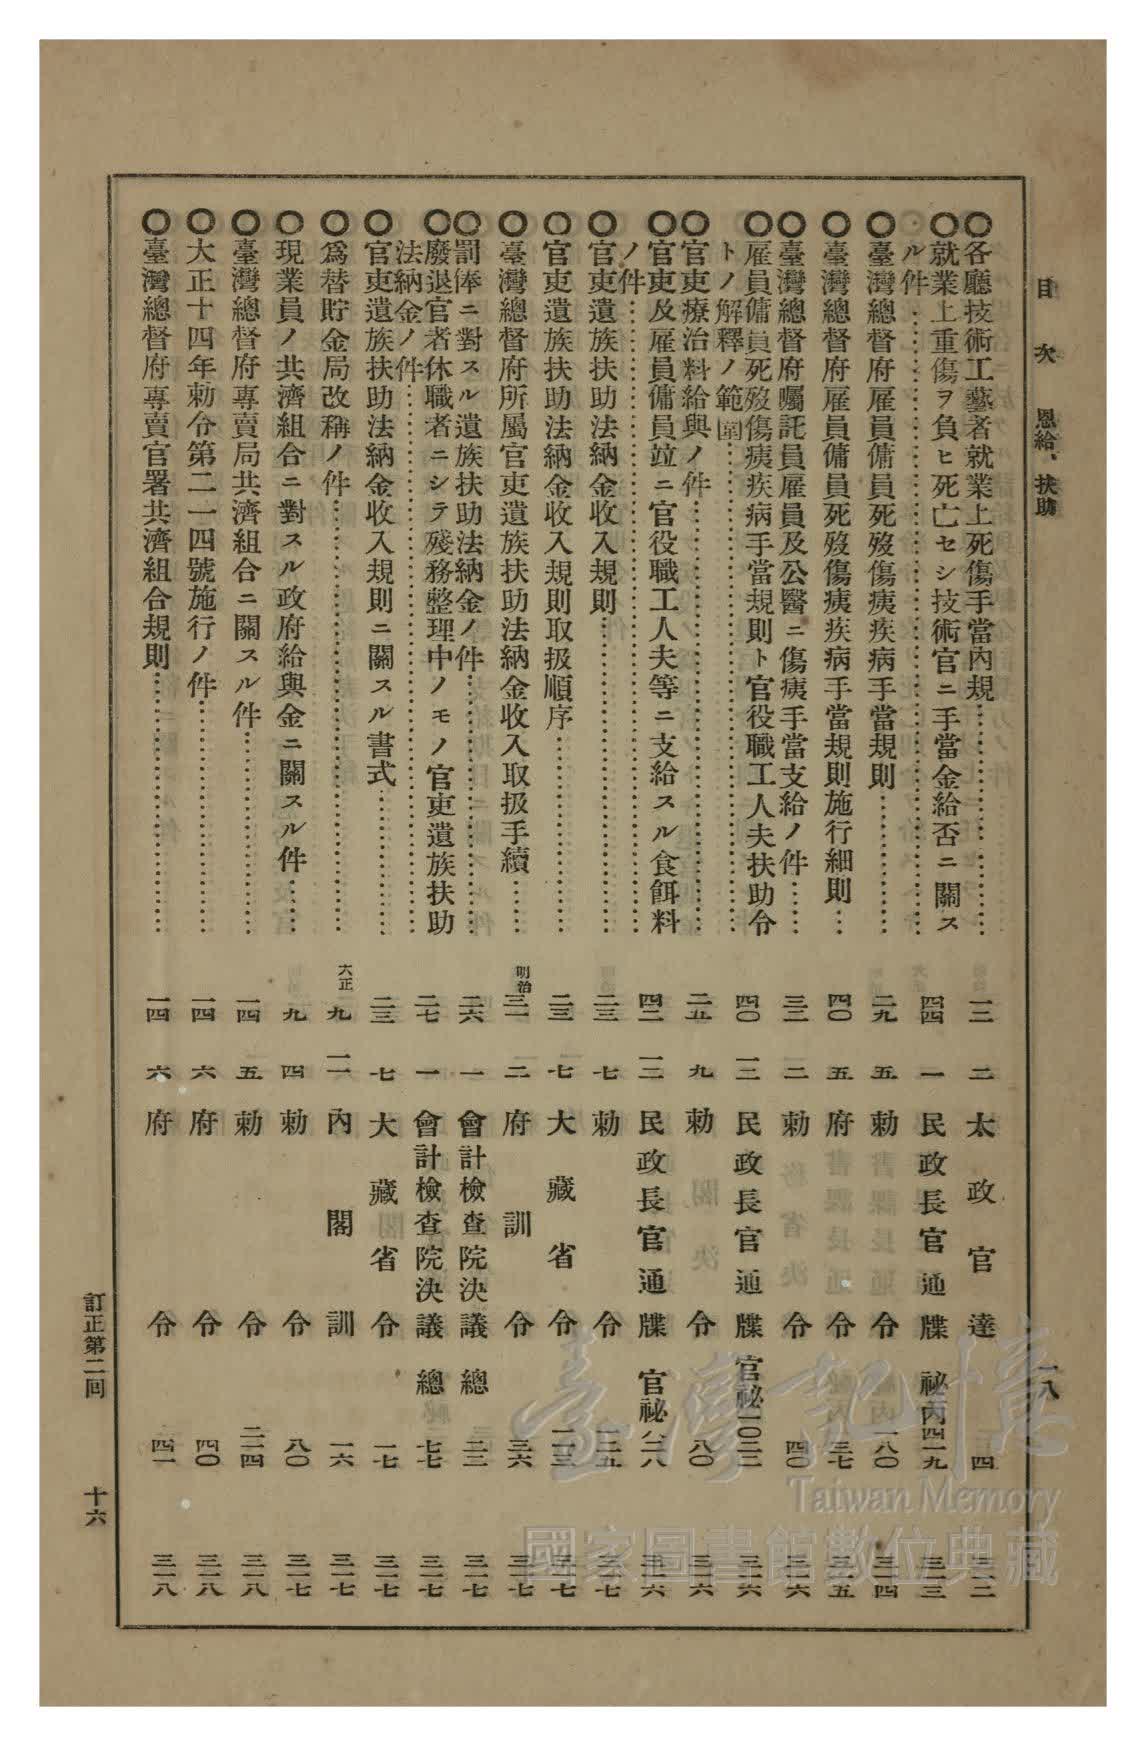 目次　恩給、扶助　一八
〇各廳技術工藝者就業上死傷手當內規　一二　二　太政官達　四　三二二
〇就業上重傷ヲ負ヒ死亡セシ技術官ニ手當金給否ニ關ス
ル件　四四　一　民政長官通牒　祕內四一九　三二三
〇臺灣總督府雇員傭員死歿傷痍疾病手當規則　二九　五　勅令　一八〇　三二四
〇臺灣總督府雇員傭員死歿傷痍疾病手當規則施行細則　四〇　五　府令　三七　三二五
〇臺灣總督府囑託員雇員及公醫ニ傷痍手當支給ノ件　三二　二　勅令　四〇　三二六
〇雇員傭員死歿傷痍疾病手當規則ト官役職工人夫扶助令
トノ解釋ノ範圍　四〇　一二　民政長官通牒　官祕一〇二二　三二六
〇官吏療治料給與ノ件　二五　九　勅令　八〇　三二六
〇官吏及雇員傭員竝ニ官役職工人夫等ニ支給スル食餌料
ノ件　四二　一二　民政長官通牒　官祕八二八　三二六
〇官吏遺族扶助法納金收入規則　二三　七　勅令　一二五　三二七
〇官吏遺族扶助法納金收入規則取扱順序　二三　七　大藏省令　一三　三二七
〇臺灣總督府所屬官吏遺族扶助法納金收入取扱手續　明治三一　二　府訓令　三六　三二七
〇罰俸ニ對スル遺族扶助法納金ノ件　二六　一　會計檢查院決議　總　三二　三二七
〇廢退官者休職者ニシテ殘務整理中ノモノ官吏遺族扶助
法納金ノ件　二七　一　會計檢查院決議　總　七七　三二七
〇官吏遺族扶助法納金收入規則ニ關スル書式　二三　七　大藏省令　一七　三二七
〇爲替貯金局改稱ノ件　大正九　一一　內閣訓　一六　三二七
〇現業員ノ共濟組合ニ對スル政府給與金ニ關スル件　九　四　勅令　八〇　三二七
〇臺灣總督府專賣局共濟組合ニ關スル件　一四　五　勅令　二一四　三二八
〇大正十四年勅令第二一四號施行ノ件　一四　六　府令　四〇　三二八
〇臺灣總督府專賣官署共濟組合規則　一四　六　府令　四一　三二八
訂正第二回　十六
臺灣記憶
Taiwan Memory
國家圖書館數位典藏